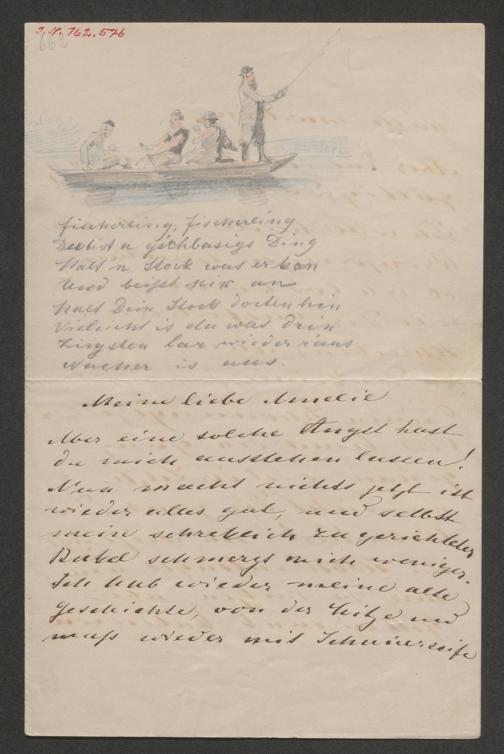 I.N. 162.576
662
fischerling, fischerling
Du bist a gschbasigs Ding
Halt'n Stock was er kan
Und beißt nix an
Halt Dein Stock dortenhin
Vieleicht is da was drin
lar wieder raus
Nacher is aus.
Meine liebe Amelie
Aber eine solche Angst hast
du mich ausstehen lassen!
Nun macht nichts jetzt ist
wieder alles gut, und selbst
mein schreklich zugerichteter
Bukel schmerzt mich weniger.
Ich hab wieder meine alte
Geschichte, von der Hitze und
muß wieder mit Schmierseife